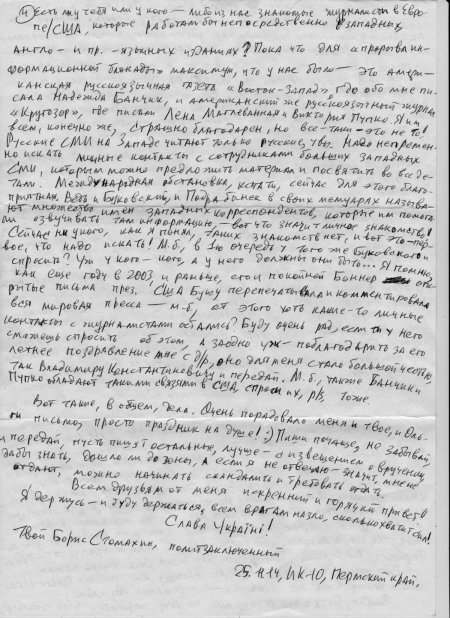 ④ Есть ли у тебя или у кого-либо из нас знакомые журналисты в Евро-
пе/США, которые работали бы непосредственно в западных,
англо- и пр.-язычных изданиях? Пока что для «прорыва ин-
формационной блокады» максимум, что у нас было – это амери-
канская русскоязычная газета «Восток-Запад», где обо мне пи-
сала Надежда Банчик, и американский же русскоязычный журнал
«Кругозор», где писали Лена Маглеванная и Виктория Пупко. Я им
всем, конечно же, страшно благодарен, но все-таки – это не то!
Русские СМИ на Западе читают только русские, увы. Надо непремен-
но искать личные контакты с сотрудниками больших западных
СМИ, которым можно предложить материал и посвятить во все де-
тали. Международная обстановка, кстати, сейчас для этого благо-
приятная. Ведь и Буковский, и Подрабинек в своих мемуарах называ-
ют множество имен западных корреспондентов, которые им помога-
ли озвучивать там информацию – вот что значит личные знакомства!
Сейчас ни у кого, как я понял, таких знакомств нет, и вот это – пер-
вое, что надо искать! М.б., в 1-ю очередь у того же Буковского и
спросить? Уж у кого-кого, а у него должны они быть... Я помню,
как еще году в 2003, и раньше, его и покойной Боннер отк-
рытые письма през. США Бушу перепечатывала и комментировала
вся мировая пресса – м.б., от этого хоть какие-то личные
контакты с журналистами остались? Буду очень рад, если ты у него
сможешь спросить об этом, а заодно уж – поблагодарить за его
летнее поздравление мне с д/р, оно для меня стало большой честью,
так Владимиру Константиновичу и передай. М.б., также Банчик и
Пупко обладают такими связями в США, спроси их, pls, тоже.
Вот такие, в общем, дела. Очень порадовало меня и твое, и Оль-
ги письмо, просто праздник на душе! :) Пиши почаще, не забывай,
и передай, пусть пишут остальные, лучше – с извещением о вручении,
дабы знать, дошло ли до зоны, а если я не отвечаю – значит, мне не
отдают, можно начинать скандалить и требовать отдать.
Всем друзьям от меня искренний и горячий привет!!
Я держусь – и буду держаться, всем врагам назло, сколько хватит сил!
Слава Україні!
Твой Борис Стомахин, политзаключенный
25.11.14, ИК-10, Пермский край.